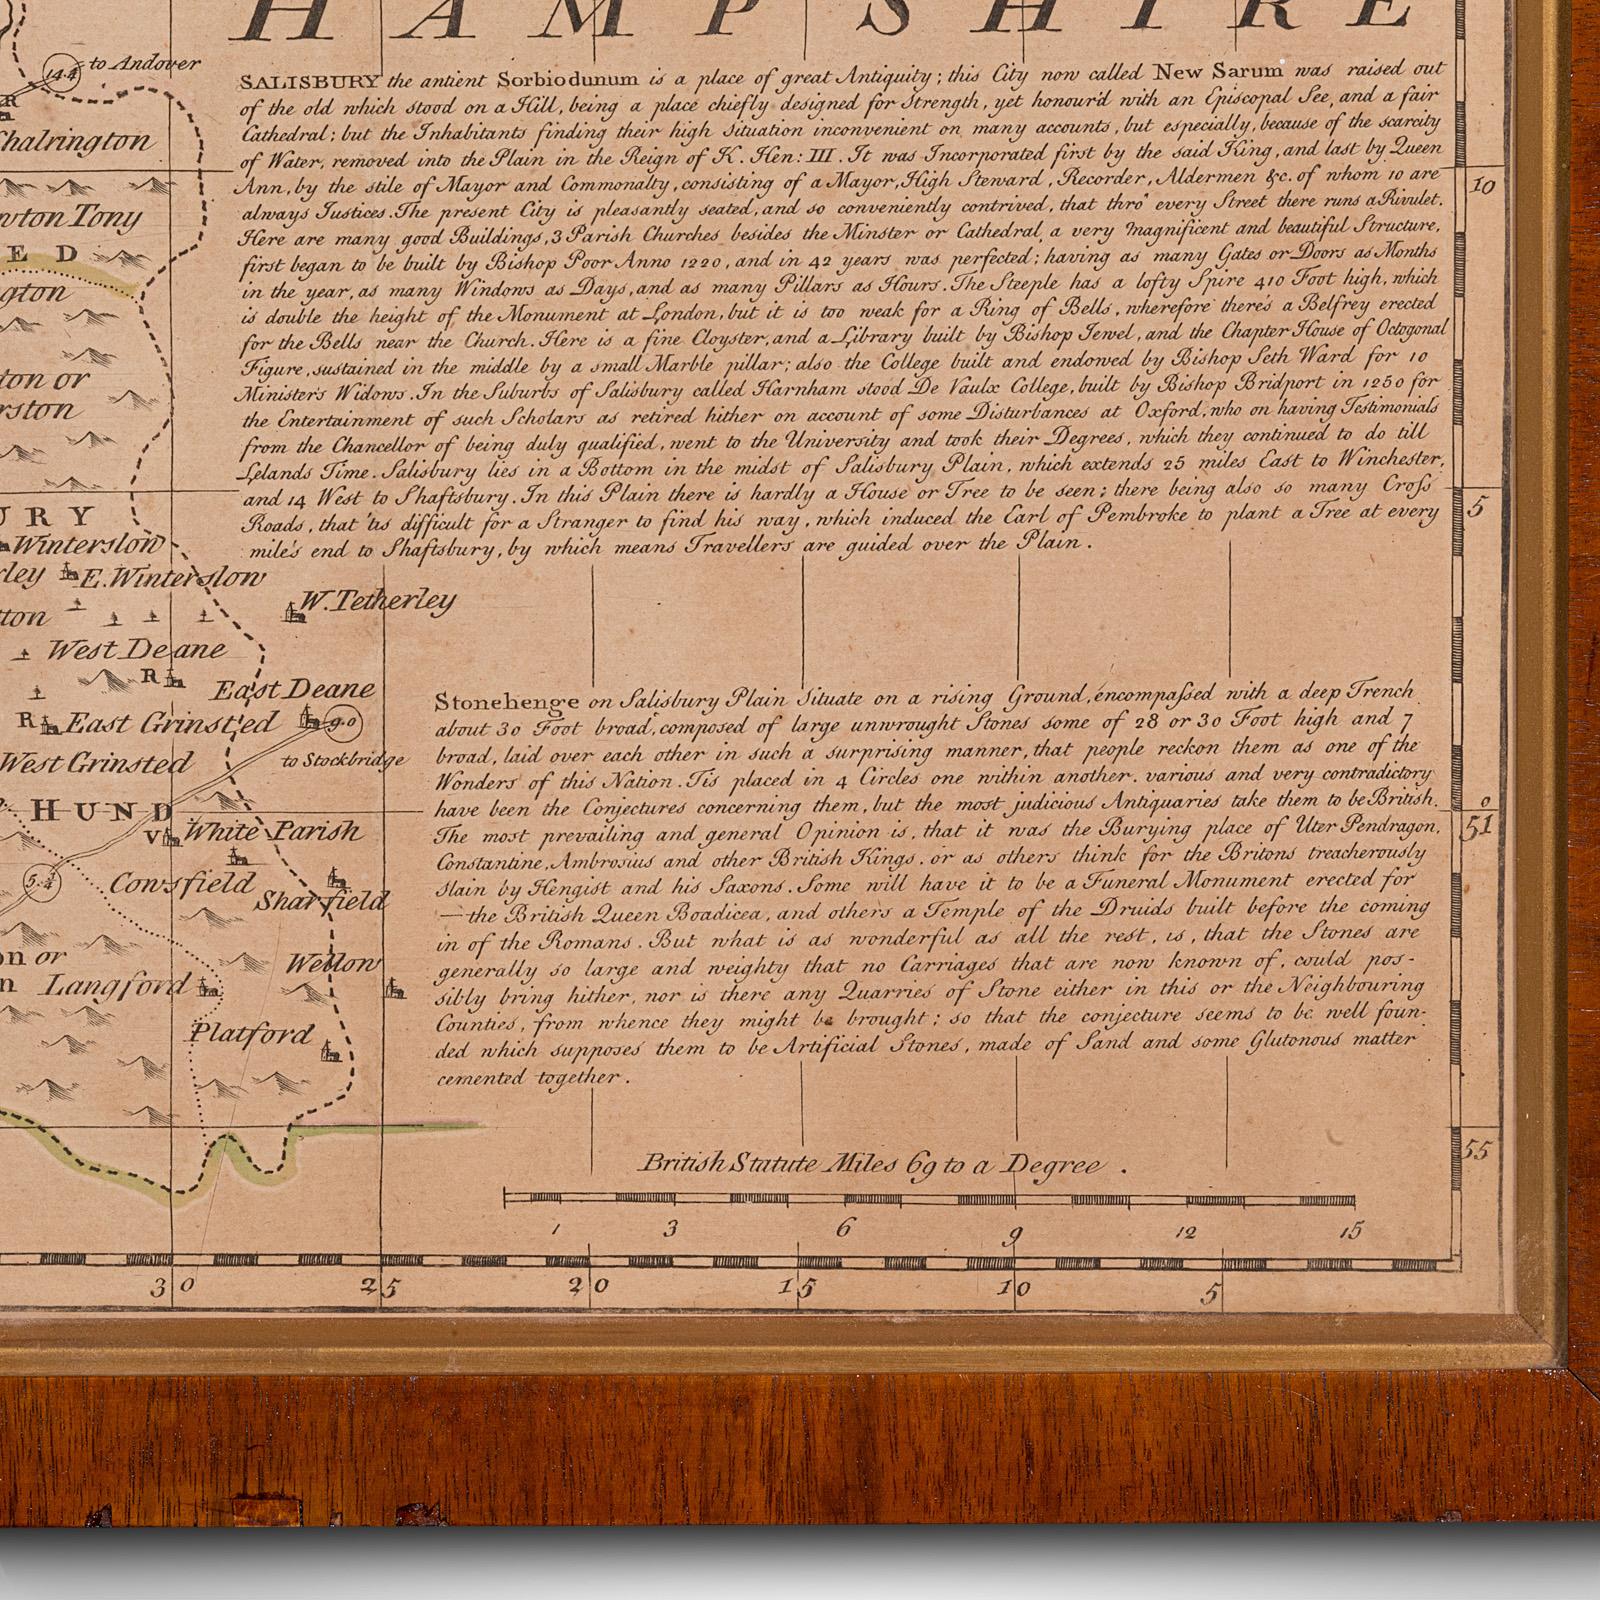 HAMPSHIRE
14.4 to Andover
R
Chalrington
10
Tony
E D
ton or
U R Y
Winterslow
E. Winterslow
W. Tetherley
West Deane
R
East Deane
R East Grinsted 90
West Grinsted
to Stockbridge
HUND
V White Parish
54
Cowsfield
Sharfield
on or
Wellow
n Langford
Platford
SALISBURY the antient Sorbiodunum is a place of great Antiquity; this City now called New Sarum was raised out
of the old which stood on a Hill, being a place chiefly designed for Strength, yet honour'd with an Episcopal See, and a fair
Cathedral; but the Inhabitants finding their high Situation inconvenient on many accounts, but especially, because of the scarcity
of Water, removed into the Plain in the Reign of K. Hen: III. It was Incorporated first by the said King, and last by Queen
Ann, by the stile of Mayor and Commonalty, consisting of a Mayor, High Steward, Recorder, Aldermen &c. of whom 10 are
always Justices. The present City is pleasantly seated, and so conveniently contrived, that thro' every Street there runs a Rivulet.
Here are many good Buildings, 3 Parish Churches besides the Minster or Cathedral, a very magnificent and beautiful Structure,
first began to be built by Bishop Poor Anno 1220, and in 42 years was perfected; having as many Gates or Doors as Months
in the year, as many Windows as Days, and as many Pillars as Hours. The Steeple has a lofty Spire 410 Foot high, which
is double the height of the Monument at London, but it is too weak for a Ring of Bells, wherefore there's a Belfrey erected
for the Bells near the Church. Here is a fine Cloyster, and a Library built by Bishop Jewel, and the Chapter House of Octogonal
Figure, sustained in the middle by a small Marble pillar; also the College built and endowed by Bishop Seth Ward for 10
Minister's Widows. In the Suburbs of Salisbury called Harnham stood De Vaulx College, built by Bishop Bridport in 1250 for
the Entertainment of such Scholars as retired hither on account of some Disturbances at Oxford, who on having Testimonials
from the Chancellor of being duly qualified, went to the University and took their Degrees, which they continued to do till
Lelands Time. Salisbury lies in a Bottom in the midst of Salisbury Plain, which extends 25 miles East to Winchester,
and 14 West to Shaftsbury. In this Plain there is hardly a House or Tree to be seen; there being also so many Cross
Roads, that 'tis difficult for a Stranger to find his way, which induced the Earl of Pembroke to plant a Tree at every
mile's end to Shaftsbury, by which means Travellers are guided over the Plain.
5
Stonehenge on Salisbury Plain Situate on a rising Ground, encompassed with a deep Trench
about 30 Foot broad, composed of large unwrought Stones some of 28 or 30 Foot high and 7
broad, laid over each other in such a surprising manner, that people reckon them as one of the
Wonders of this Nation. Tis placed in 4 Circles one within another. various and very contradictory
have been the Conjectures concerning them, but the most judicious Antiquaries take them to be British.
The most prevailing and general Opinion is, that it was the Burying place of Uter Pendragon,
Constantine, Ambrosius and other British Kings. or as others think for the Britons treacherously
slain by Hengist and his Saxons. Some will have it to be a Funeral Monument erected for
— the British Queen Boadicea, and others a Temple of the Druids built before the coming
in of the Romans. But what is as wonderful as all the rest, is, that the Stones are
generally so large and weighty that no Carriages that are now known of, could pos-
sibly bring hither, nor is there any Quarries of Stone either in this or the Neighbouring
Counties, from whence they might be brought; so that the conjecture seems to be well foun-
ded which supposes them to be Artificial Stones, made of Sand and some Glutonous matter
cemented together.
0
51
55
British Statute Miles 69 to a Degree.
1 3 6 9 12 15
30 25 20 15 10 5